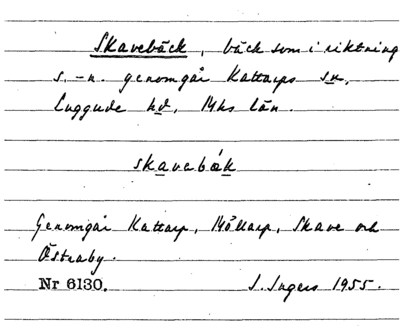 Skavebäck, bäck som i riktning
s.-n. genomgår Kattarps sn,
Luggude hd, Mhs län.
skavebäk
Genomgår Kattarp, Möllarp, Skave och
Östraby.
Nr 6130. I. Ingers 1955.